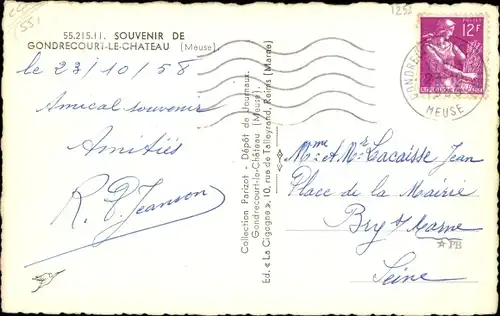 551
1255
55.215.11. SOUVENIR DE
GONDRECOURT-LE-CHATEAU (Meuse)
le 23/10/58
Amical souvenir
Amitiés
R. P. Jeanson
Collection Parizot - Dépôt de Journaux.
Gondrecourt-le-Château (Meuse).
Ed. « La Cigogne », 10, rue de Talleyrand, Reims (Marne)
POSTES
12F
MEUSE
Mme & Mr Lacaisse Jean
Place de la Mairie
Bry s/ Marne
Seine
PB